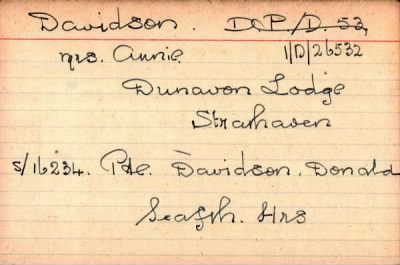 Davidson. D.P./D. 53
Mrs. Annie 1/D/26532
Dunavon Lodge
Strahaven
S/16234. Pte. Davidson. Donald
Seafth. Hrs